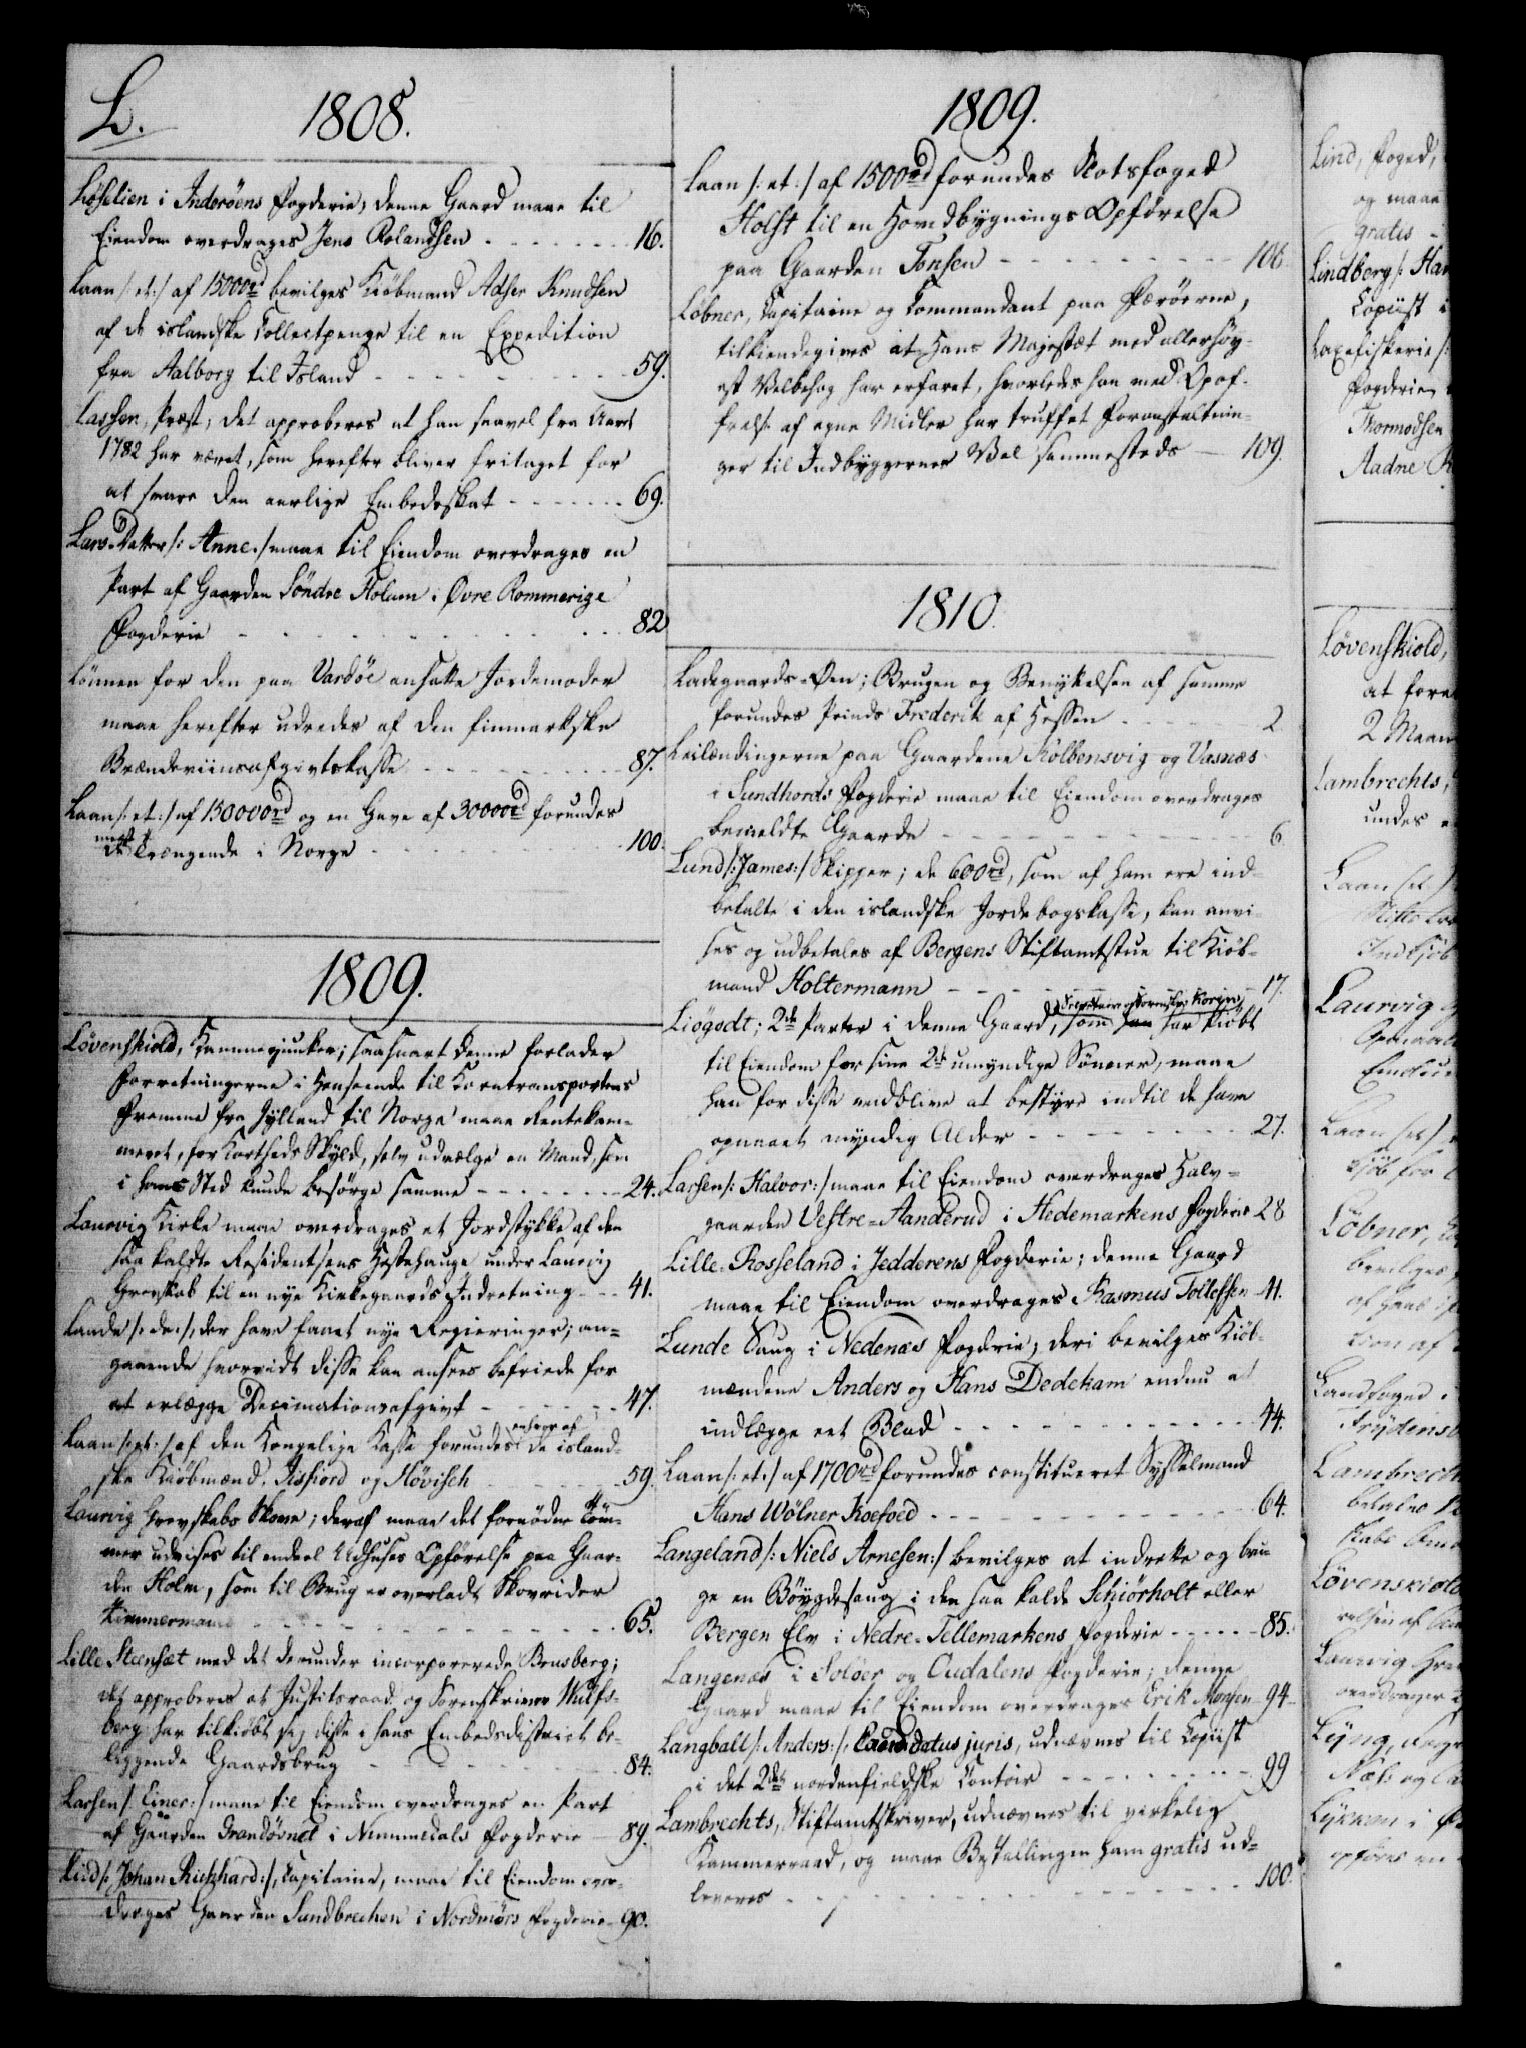 L.
1808.
Løhelien i Inderöens Fogderie, denne Gaard maae til
Eiendom overdrages Jens Rolandsen - - - 16.
Laan /:et:/ af 15000rd bevilges Kiöbmand Adser Knudsen
af de islandske Collectpenge til en Expedition
fra Aalborg til Island - - - 59.
Lassen, Præst, det approberes at han saavel fra Aaret
1782 har været, som herefter bliver fritaget for
at svare den aarlige Embedsskat - - - 69.
Lars Datter /:Anne:/ maae til Eiendom overdrages en
Part af Gaarden Söndre Holum i Øvre Rommerige
Fogderie - - - 82
Lönnen for den paa Vardöe ansatte Jordemoder
maae herefter udredes af den finmarkske
Brændeviinsafgivtskasse - - - 87.
Laan /:et:/ af 150000rd og en Gave af 30000rd forundes
de meest Trængende i Norge - - - 100.
1809.
Lövenskiold, Kammerjunker; saasnart denne forlader
Forretningerne i Henseende til Korntransportens
Fremme fra Jylland til Norge maae Rentekam-
meret, for Kortheds Skyld, selv udvælge en Mand, som
i hans Sted kunde besörge samme - - - 24.
Laurvig Kirke maae overdrages et Jordstykke af den
saa kaldte Residentsens Hestehauge under Laurvig
Grevskab til en nye Kirkegaards Indretning - - - 41.
Lande /:de:/, der have faaet nye Regieringer; an-
gaaende hvorvidt disse kan ansees befriede for
at erlægge Decimationsafgivt - - - 47.
Laan /:et:/ af den Kongelige Kasse forundes enhver af de island-
ske Kiöbmænd, Isfiord og Hövisch - - - 59.
Laurvig Grevskabs Skove; deraf maae det fornödne Töm-
mer udvises til endeel Udhuses Opförelse paa Gaar-
den Holm, som til Brug er overladt Skovrider
Timmermand - - - 65.
Lille Steenset med det derunder incorporerede Brusberg;
det approberes at Justitsraad og Sorenskriver Wulfs-
berg har tilkiöbt sig disse i hans Embedsdistrict be-
liggende Gaardsbrug - - - 84.
Larsen /:Einer:/ maae til Eiendom overdrages en Part
af Gaarden Grandörnet i Nummedals Fogderie 89.
Lied /:Johan Richhard:/, Capitaine, maae til Eiendom over-
drages Gaarden Sundbrechen i Nordmörs Fogderie 90.
1809.
Laan /:et:/ af 1500rd forundes Slotsfoged
Holst til en Hovedbygnings Opförelse
paa Gaarden Tonsen - - - 108
Löbner, Capitaine og Commandant paa Færöerne,
tilkiendegives at Hans Majestæt med allerhöy-
est Velbehag har erfaret, hvorledes han med Opof-
frelse af egne Midler har truffet Foranstaltnin-
ger til Indbyggernes Vel sammesteds - 109.
1810.
Ladegaards-Øen; Brugen og Benyttelsen af samme
forundes Prinds Frederik af Hessen - - - 2
Leilændingerne paa Gaardene Kolbensvig og Vasnæs
i Sundhords Fogderie maae til Eiendom overdrages
bemeldte Gaarde - - - 6
Lund /:James:/ Skipper; de 600rd, som af ham ere ind-
betalte i den islandske Jordebogskasse, kan anvi-
ses og udbetales af Bergens Stiftamtstue til Kiöb-
mand Holtermann - - - 17.
Liögodt; 2de Parter i denne Gaard, som har kiöbt
til Eiendom for sine 2de umyndige Sönner, maae
han for disse vedblive at bestyre indtil de have
opnaaet myndig Alder - - - 27.
Larsen /:Halvor:/ maae til Eiendom overdrages Halv-
gaarden Vestre-Handerud i Hedemarkens Fogderie 28
Lille-Rosseland i Jedderens Fogderie; denne Gaard
maae til Eiendom overdrages Rasmus Tollefsen 41.
Lunde Saug i Nedenæs Fogderie; deri bevilges Kiöb-
mændene Anders og Hans Dedekam endnu at
indlægge eet Blad - - - 44.
Laan /:et:/ af 1700rd forundes constitueret Sysselmand
Hans Wölner Koefoed - - - 64.
Langeland /:Niels Arnesen:/ bevilges at indrette og bru-
ge en Böygdesaug i den saa kaldte Schiörholt eller
Bergen Elv i Nedre-Tellemarkens Fogderie - - - 85.
Langenæs i Solöer og Oudalens Fogderie; denne
Gaard maae til Eiendom overdrages Erik Monsen 94
Langball /:Anders:/, Candidatus juris, udnævnes til Copiist
i det 2det nordenfieldske Contoir - - - 99
Lambrechts, Stiftamtskriver, udnævnes til virkelig
Kammerraad, og maae Bestallingen ham gratis ud-
leveres - - - 100.
Lind, Foged,
og maae
gratis
Lindberg /:Han
Copiist i
Laxefiskerie /:
Fogderie
Thormodsen
Aadne
Lövenskiold,
at fore
2 Maan
Lambrechts,
undes
Laan /:et:/
Laurvig
Laan /:et:/
Löbner,
bevilges
Landfoged
Lambrechts
betales
Lövenskiold
Laurvig Grev
overdrages
Lyng,
opföres